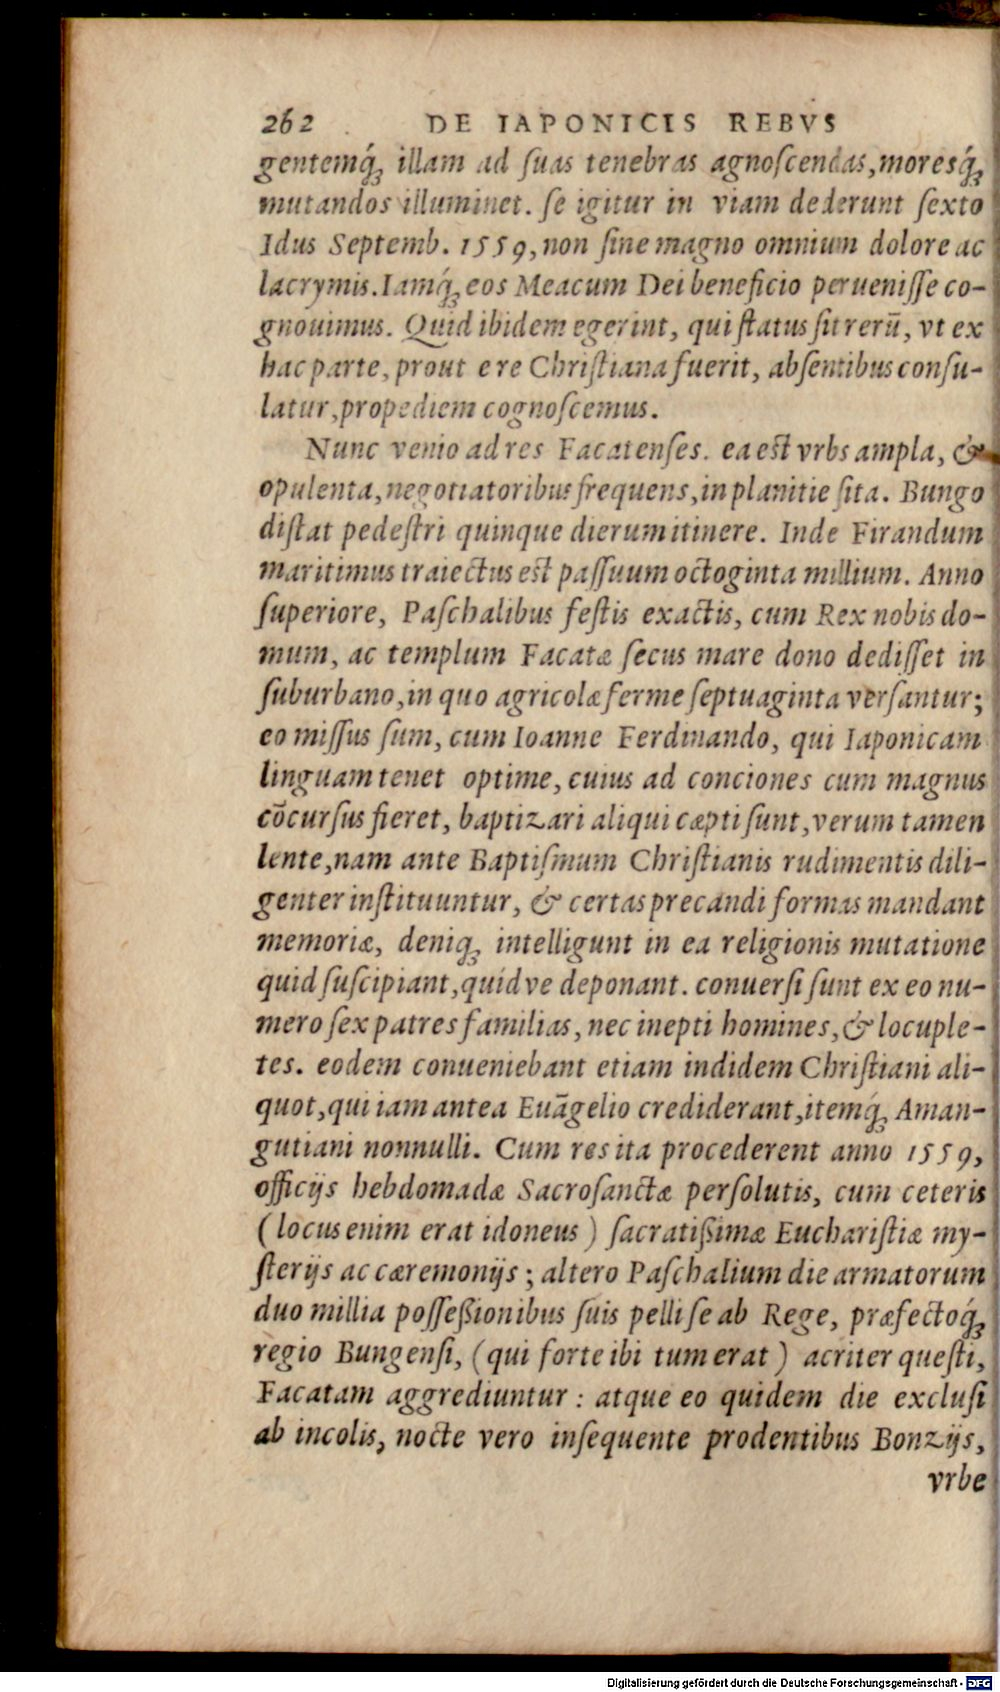 262 DE IAPONICIS REBVS
gentemq́ue illam ad ſuas tenebras agnoſcendas, moresq́ue
mutandos illuminet. ſe igitur in viam dederunt ſexto
Idus Septemb. 1559, non ſine magno omnium dolore ac
lacrymis. Iamq́ue eos Meacum Dei beneficio perueniſſe co-
gnouimus. Quid ibidem egerint, qui ſtatus ſit rerū, vt ex
hac parte, prout e re Chriſtiana fuerit, abſentibus conſu-
latur, propediem cognoſcemus.
Nunc venio ad res Facatenſes. ea eſt vrbs ampla, &
opulenta, negotiatoribus frequens, in planitie ſita. Bungo
diſtat pedeſtri quinque dierum itinere. Inde Firandum
maritimus traiectus eſt paſſuum octoginta millium. Anno
ſuperiore, Paſchalibus feſtis exactis, cum Rex nobis do-
mum, ac templum Facatæ ſecus mare dono dediſſet in
ſuburbano, in quo agricolæ ferme ſeptuaginta verſantur;
eo miſſus ſum, cum Ioanne Ferdinando, qui Iaponicam
linguam tenet optime, cuius ad conciones cum magnus
cōcurſus fieret, baptizari aliqui cæpti ſunt, verum tamen
lente, nam ante Baptiſmum Chriſtianis rudimentis dili-
genter inſtituuntur, & certas precandi formas mandant
memoriæ, deniq; intelligunt in ea religionis mutatione
quid ſuſcipiant, quidve deponant. conuerſi ſunt ex eo nu-
mero ſex patres familias, nec inepti homines, & locuple-
tes. eodem conueniebant etiam indidem Chriſtiani ali-
quot, qui iam antea Euāgelio crediderant, itemq́; Aman-
gutiani nonnulli. Cum res ita procederent anno 1559,
officijs hebdomadæ Sacroſanctæ perſolutis, cum ceteris
(locus enim erat idoneus) ſacratißimæ Euchariſtiæ my-
ſterijs ac cæremonijs; altero Paſchalium die armatorum
duo millia poſſeßionibus ſuis pelli ſe ab Rege, præfectoq́;
regio Bungenſi, (qui forte ibi tum erat) acriter queſti,
Facatam aggrediuntur: atque eo quidem die excluſi
ab incolis, nocte vero inſequente prodentibus Bonzijs,
vrbe
Digitalisierung gefördert durch die Deutsche Forschungsgemeinschaft - DFG